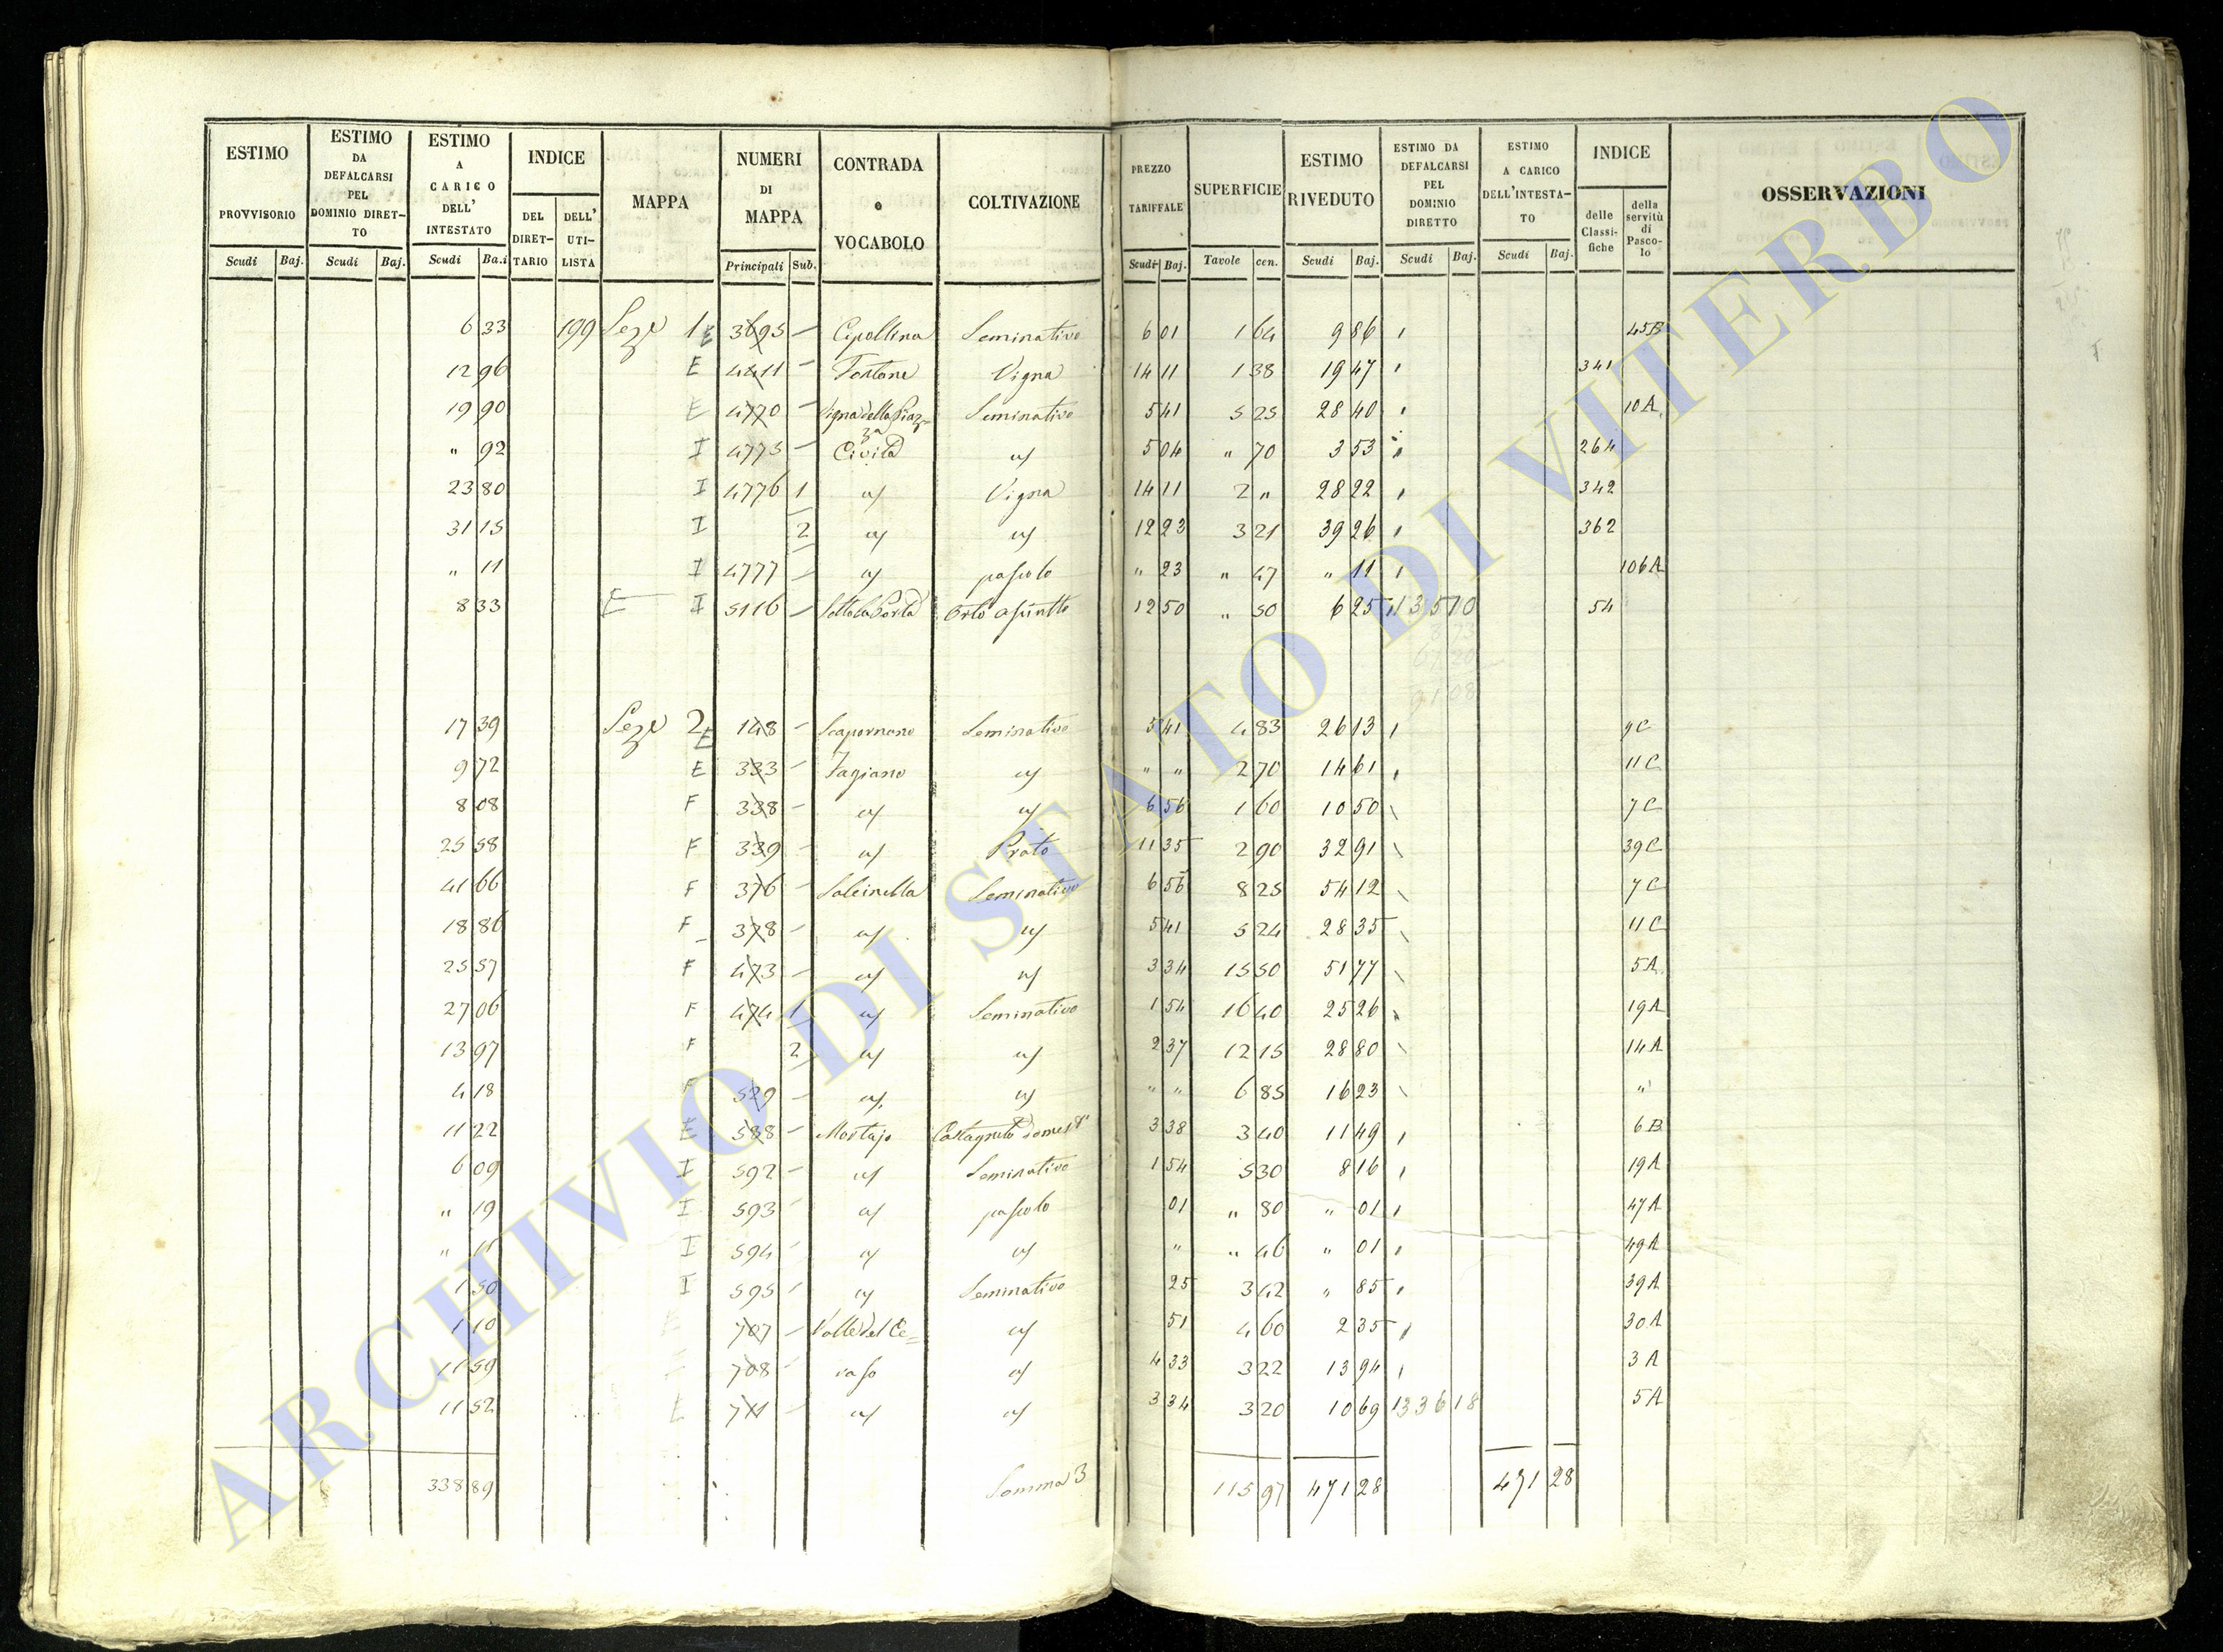 ESTIMO PROVVISORIO | ESTIMO DA DEFALCARSI PEL DOMINIO DIRET- TO | ESTIMO A CARICO DELL' INTESTATO | INDICE | MAPPA | NUMERI DI MAPPA | CONTRADA o VOCABOLO | COLTIVAZIONE | PREZZO TARIFFALE | SUPERFICIE | ESTIMO RIVEDUTO | ESTIMO DA DEFALCARSI PEL DOMINIO DIRETTO | ESTIMO A CARICO DELL'INTESTA- TO | INDICE | OSSERVAZIONI
DEL DIRET- TARIO | DELL' UTI- LISTA | delle Classi- fiche | della servitù di Pasco- lo
Scudi | Baj. | Scudi | Baj. | Scudi | Ba.i | Principali | Sub. | Scudi | Baj. | Tavole | cen. | Scudi | Baj. | Scudi | Baj. | Scudi | Baj.
6 33 | 199 | Seze 1 E | 3695 | Cipollina | Seminativo | 6 01 | 1 64 | 9 86 | 45B
12 96 | E | 4411 | Fontane | Vigna | 14 11 | 1 38 | 19 47 | 341
19 90 | E | 4770 | Vigna della Piaz- za | Seminativo | 5 41 | 5 25 | 28 40 | 10A
" 92 | I | 4775 | Civita | a/ | 5 04 | " 70 | 3 53 | 264
23 80 | I | 4776 | 1 | a/ | Vigna | 14 11 | 2 " | 28 22 | 342
31 15 | I | 2 | a/ | a/ | 12 23 | 3 21 | 39 26 | 362
" 11 | I | 4777 | a/ | pascolo | " 23 | " 47 | " 11 | 106A
8 33 | E | I | 5116 | Sotto la Porta | Orto asciutto | 12 50 | " 50 | 6 25 | 135 10 | 54
61 20
91 08
17 39 | Seze 2 E | 148 | Scapornano | Seminativo | 5 41 | 4 83 | 26 13 | 9C
9 72 | E | 333 | Fagiano | a/ | " " | 2 70 | 14 61 | 11C
8 08 | F | 338 | a/ | a/ | 6 56 | 1 60 | 10 50 | 7C
25 58 | F | 339 | a/ | Prato | 11 35 | 2 90 | 32 91 | 39C
41 66 | F | 376 | Salcinella | Seminativo | 6 56 | 8 25 | 54 12 | 7C
18 86 | F | 378 | a/ | a/ | 5 41 | 5 24 | 28 35 | 11C
25 57 | F | 473 | a/ | a/ | 3 34 | 15 50 | 51 77 | 5A
27 06 | F | 474 | 1 | a/ | Seminativo | 1 54 | 16 40 | 25 26 | 19A
13 97 | F | 2 | a/ | a/ | 2 37 | 12 15 | 28 80 | 14A
4 18 | F | 529 | a/ | a/ | " " | 6 85 | 16 23 | "
11 22 | E | 588 | Mortajo | Castagneto domest° | 3 38 | 3 40 | 11 49 | 6B
6 09 | I | 592 | a/ | Seminativo | 1 54 | 5 30 | 8 16 | 19A
" 19 | I | 593 | a/ | pascolo | 01 | " 80 | " 01 | 47A
" 11 | I | 594 | a/ | a/ | " | " 46 | " 01 | 49A
1 50 | I | 595 | a/ | Seminativo | 25 | 3 42 | " 85 | 39A
1 10 | E | 707 | Valle del Ce= | a/ | 51 | 4 60 | 2 35 | 30A
11 59 | 708 | raso | a/ | 4 33 | 3 22 | 13 94 | 3A
11 52 | E | 711 | a/ | a/ | 3 34 | 3 20 | 10 69 | 336 18 | 5A
338 89 | Somma 3 | 115 97 | 471 28 | 471 28
ARCHIVIO DI STATO DI VITERBO